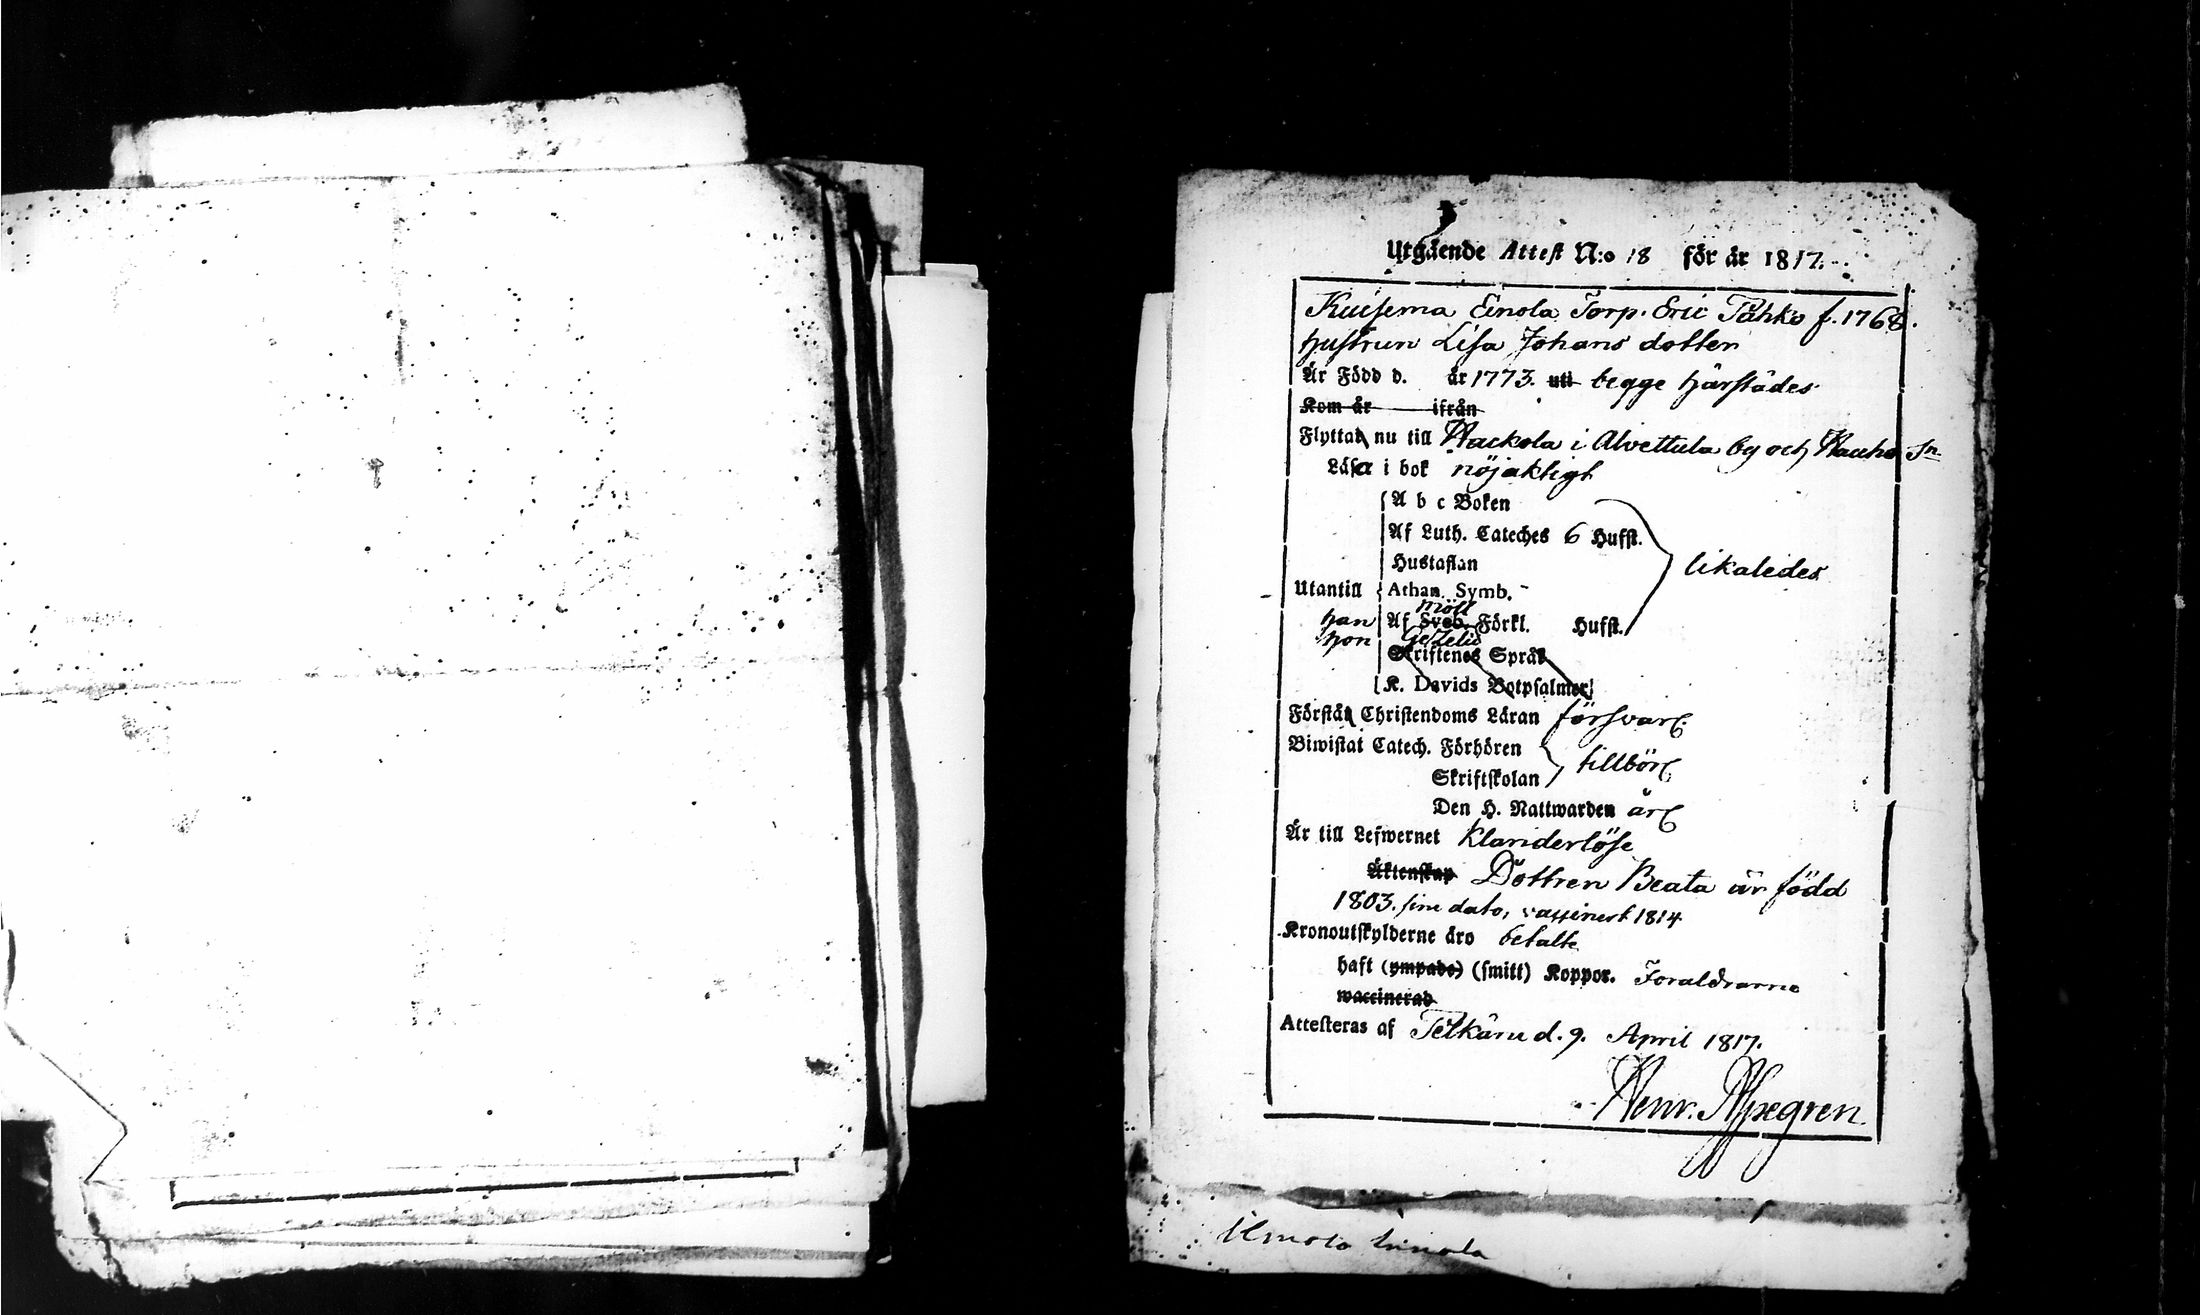 Utgående Attest N:o 18 för år 1817.
Kuisema Einola Torp. Eric Påhko f. 1768.
hustrun Lisa Johans dotter
Är Född d. år 1773. uti begge härstädes
Kom år ifrån
Flyttat nu till Hackola i Alvettula by och Hauho Sn
Läsa i bok nöjaktigt
A b c Boken
Af Luth. Cateches 6 Hufst.
Hustaflan
likaledes
Utantill Athan. Symb.
möll
han Af Sveb. Förkl. Hufst.
hon Gezelii
Skriftenes Språk
K. Davids Botpsalmer
Förstår Christendoms Läran försvarl.
Biwistat Catech. Förhören
tillbörl
Skriftskolan
Den H. Nattwarden ärl
Är till Lefwernet klanderlöse
Äktenskap Dottren Beata är född
1803. sine dato, vaccinert 1814
Kronoutskylderne äro betalte
haft (ympade) (smitt) Koppor. Föraldrarne
waccinerad
Attesteras af Pelkäne d. 9. April 1817.
Henr.